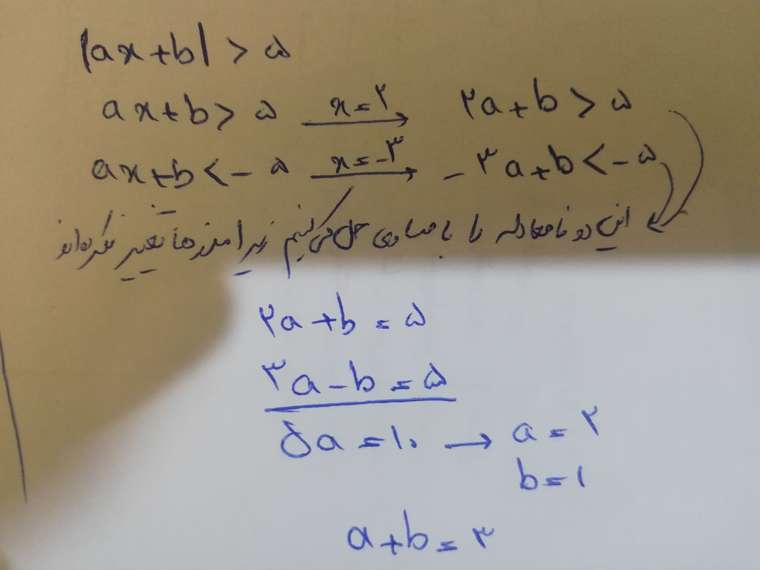 |ax+b| > ۵
ax+b > ۵ x=۲ → ۲a+b > ۵
ax+b < -۵ x=-۳ → -۳a+b < -۵
این دو نامعادله را با مساوی حل می کنیم زیرا مرزها تغییر نکرده اند
۲a+b=۵
۳a-b=۵
۵a=۱۰ → a=۲
b=۱
a+b=۳